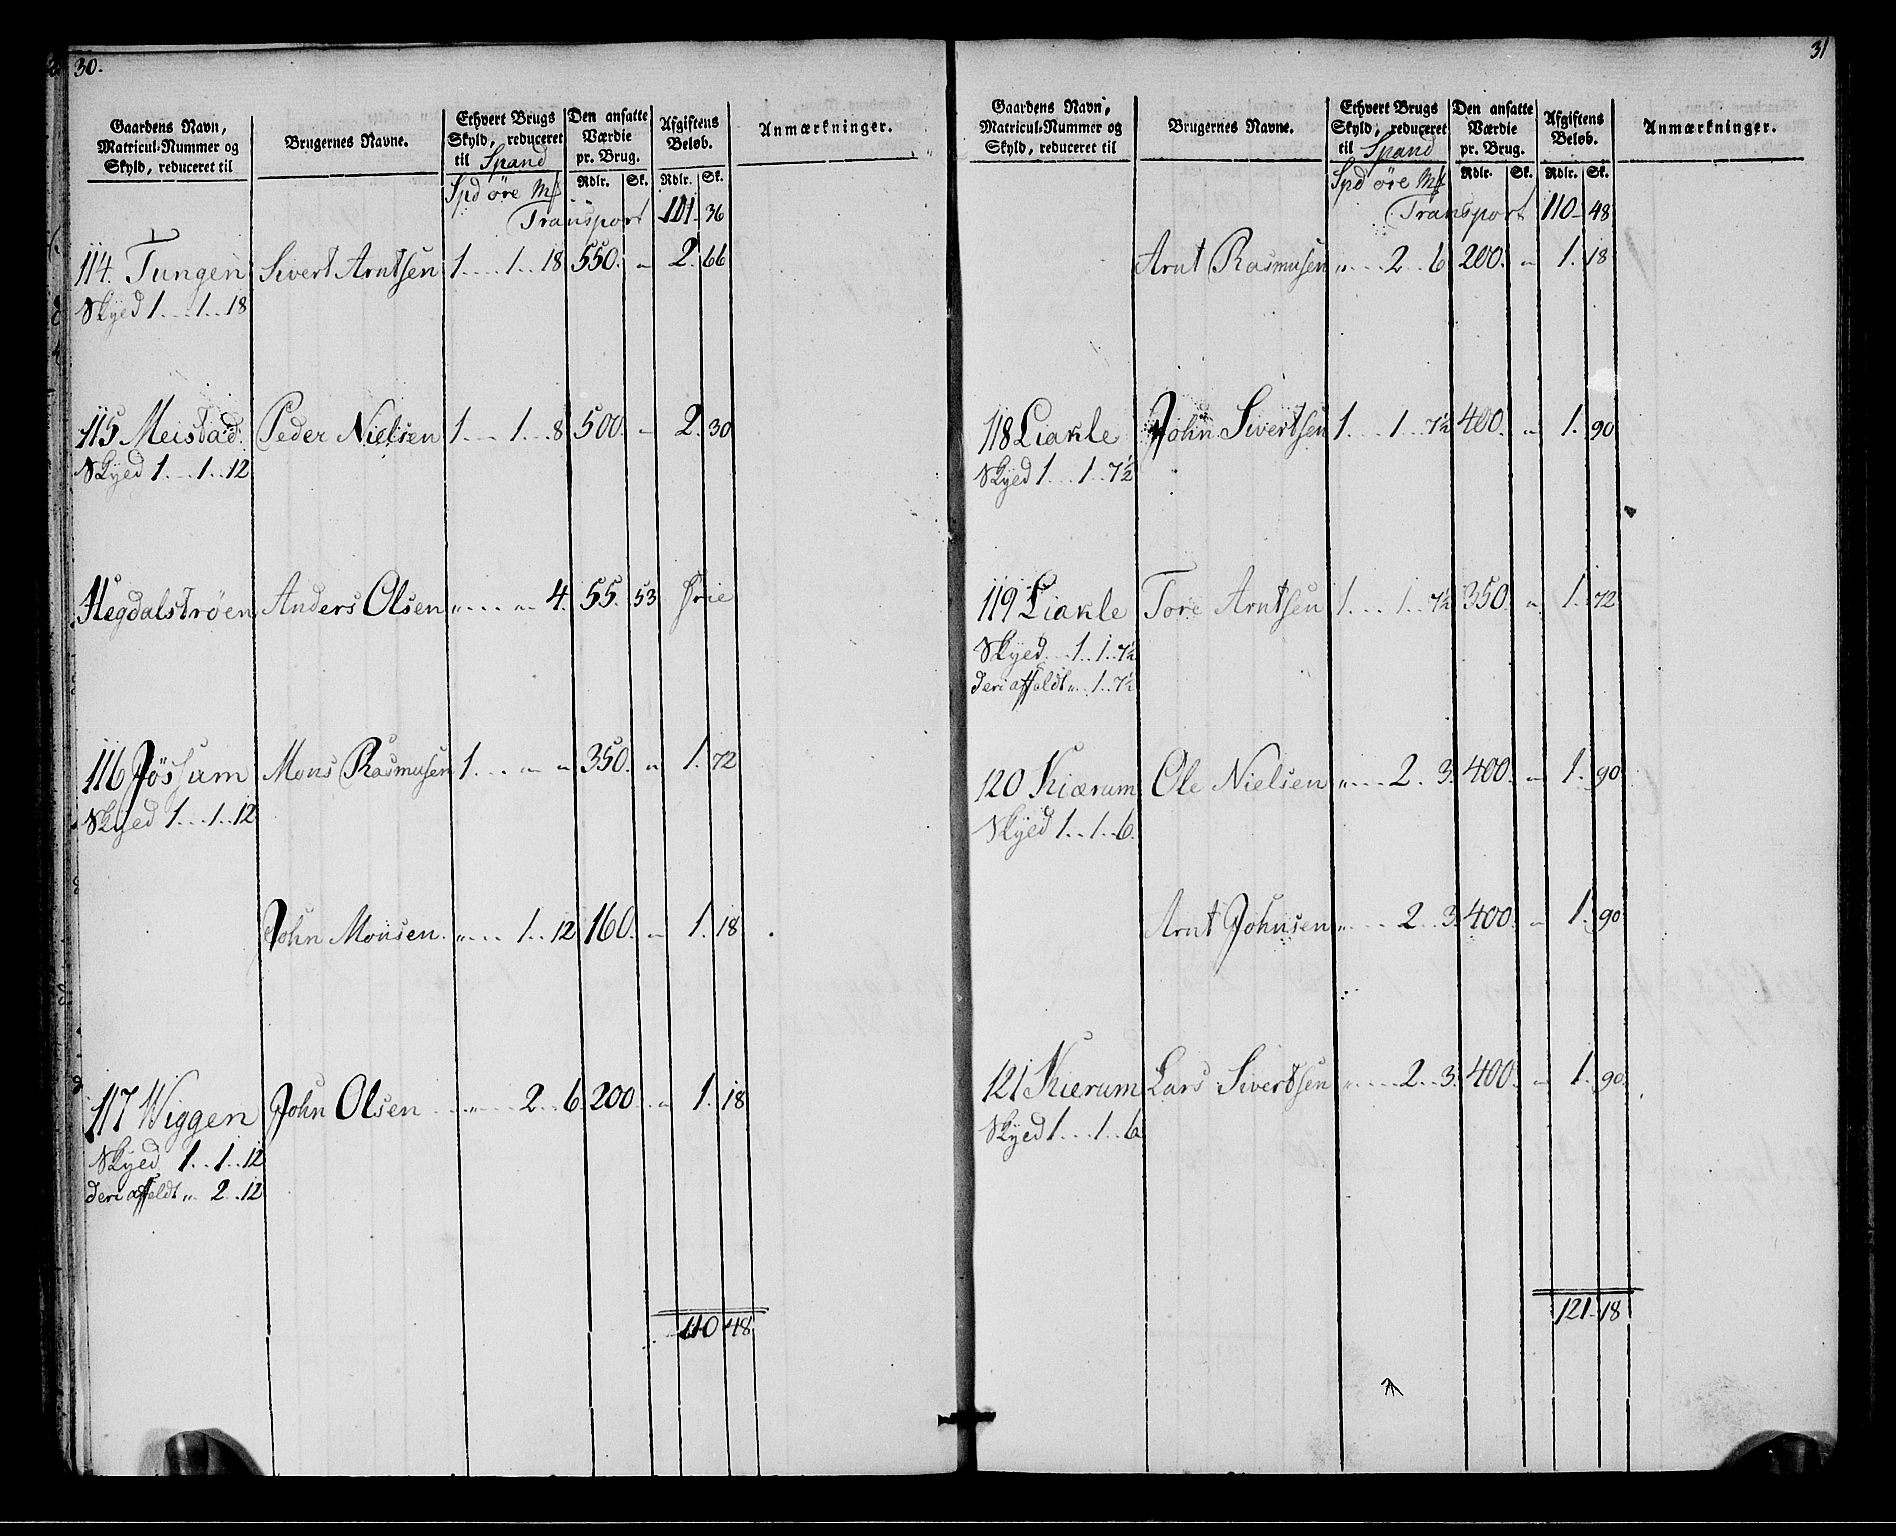 30.
Gaardens Navn, Matricul-Nummer og Skyld, reduceret til
Brugernes Navne.
Ethvert Brugs Skyld, reduceret til Spand
Den ansatte Værdie pr. Brug.
Afgiftens Beløb.
Anmærkninger.
Spd öre Mk Rdlr. Sk. Rdlr. Sk.
Transport 101 36
114. Tungen Sivert Arntsen 1 . . . 1 . . 18 550. „ 2. 66
Skyed 1 . . . 1 . . 18
115 Meistad. Peder Nielsen 1 . . . 1 . . 8 500. „ 2. 30
Skyed 1 . . . 1 . . 12
Hegdalströen Anders Olsen „ . . . „ . . 4. 55. 53 frie
116 Jössum Mons Rasmusen 1 . . . „ „ 350. „ 1. 72
Skyed 1 . . . 1 . . 12
John Monsen. „ . . . 1 . . 12 160. „ 1. 18
117 Wiggen John Olsen . . . „ . . 2 . . 6 200 . „ 1. 18
Skyed 1 . . 1 . . 12
deri affeldt „ . 2 . . 12
110 48
31
Gaardens Navn, Matricul-Nummer og Skyld, reduceret til
Brugernes Navne.
Ethvert Brugs Skyld, reduceret til Spand
Den ansatte Værdie pr. Brug.
Afgiftens Beløb.
Anmærkninger.
Spd öre Mk Rdlr. Sk. Rdlr. Sk.
Transport 110 48
Arnt Rasmusen „ . . . 2 . . 6 200. „ 1. 18
118 Liakle John Sivertsen 1 . . . 1 . . 7½ 400. „ 1. 90
Skyed 1 . . . 1 . . 7½
119 Liakle Tore Arntsen 1 . . . 1 . . 7½ 350. „ 1. 72
Skyed . . 1 . . 1 . . 7½
deri affeldt „ . . 1 . . 7½
120 Kiærum Ole Nielsen „ . . . 2 . . 3. 400. „ 1. 90
Skyed 1 . . 1 . . 6.
Arnt Johnsen „ . . . 2 . . 3. 400. „ 1. 90
121 Kierum Lars Sivertsen „ . . . 2 . . 3. 400. „ 1. 90.
Skyed 1 . . . 1 . . 6
121 18